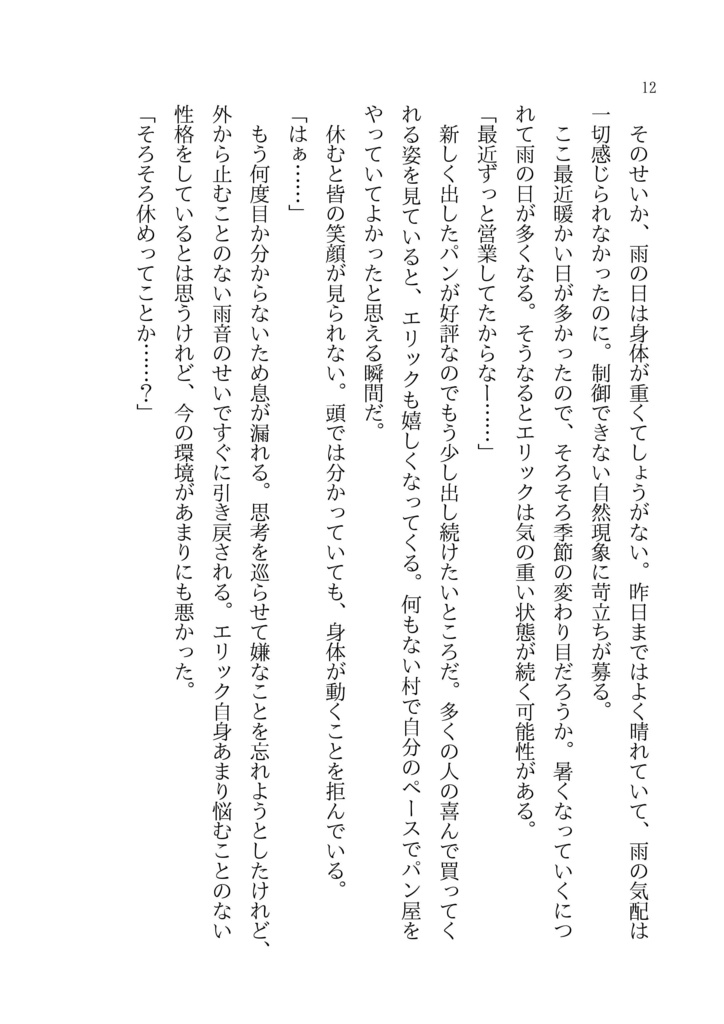 12
　そのせいか、雨の日は身体が重くてしょうがない。昨日まではよく晴れていて、雨の気配は
一切感じられなかったのに。制御できない自然現象に苛立ちが募る。
　ここ最近暖かい日が多かったので、そろそろ季節の変わり目だろうか。暑くなっていくにつ
れて雨の日が多くなる。そうなるとエリックは気の重い状態が続く可能性がある。
「最近ずっと営業してたからなー……」
　新しく出したパンが好評なのでもう少し出し続けたいところだ。多くの人の喜んで買ってく
れる姿を見ていると、エリックも嬉しくなってくる。何もない村で自分のペースでパン屋を
やっていてよかったと思える瞬間だ。
　休むと皆の笑顔が見られない。頭では分かっていても、身体が動くことを拒んでいる。
「はぁ……」
　もう何度目か分からないため息が漏れる。思考を巡らせて嫌なことを忘れようとしたけれど、
外から止むことのない雨音のせいですぐに引き戻される。エリック自身あまり悩むことのない
性格をしているとは思うけれど、今の環境があまりにも悪かった。
「そろそろ休めってことか……？」